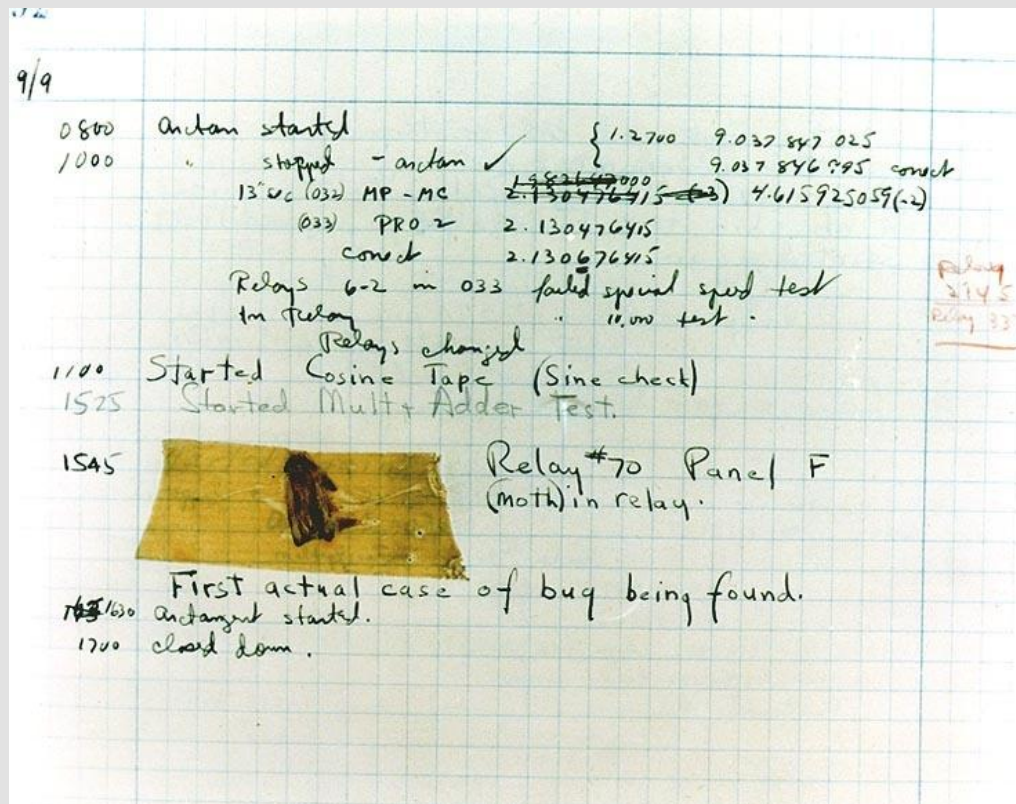 9/9
0800 arctan started { 1.2700 9.037 847 025
1000 " stopped - arctan ✓ { 9.037 846 995 correct
13" sec (032) MP - MC 2.130476415 (-3) 4.615925059(-2)
(033) PRO 2 2.130476415
correct 2.130676415
Relays 6-2 in 033 failed special speed test
in relay " 10.000 test .
Relays changed
1100 Started Cosine Tape (Sine check)
1525 Started Mult + Adder Test.
1545 Relay #70 Panel F
(moth) in relay.
First actual case of bug being found.
1630 arctangent started.
1700 closed down .
Relay
Relay